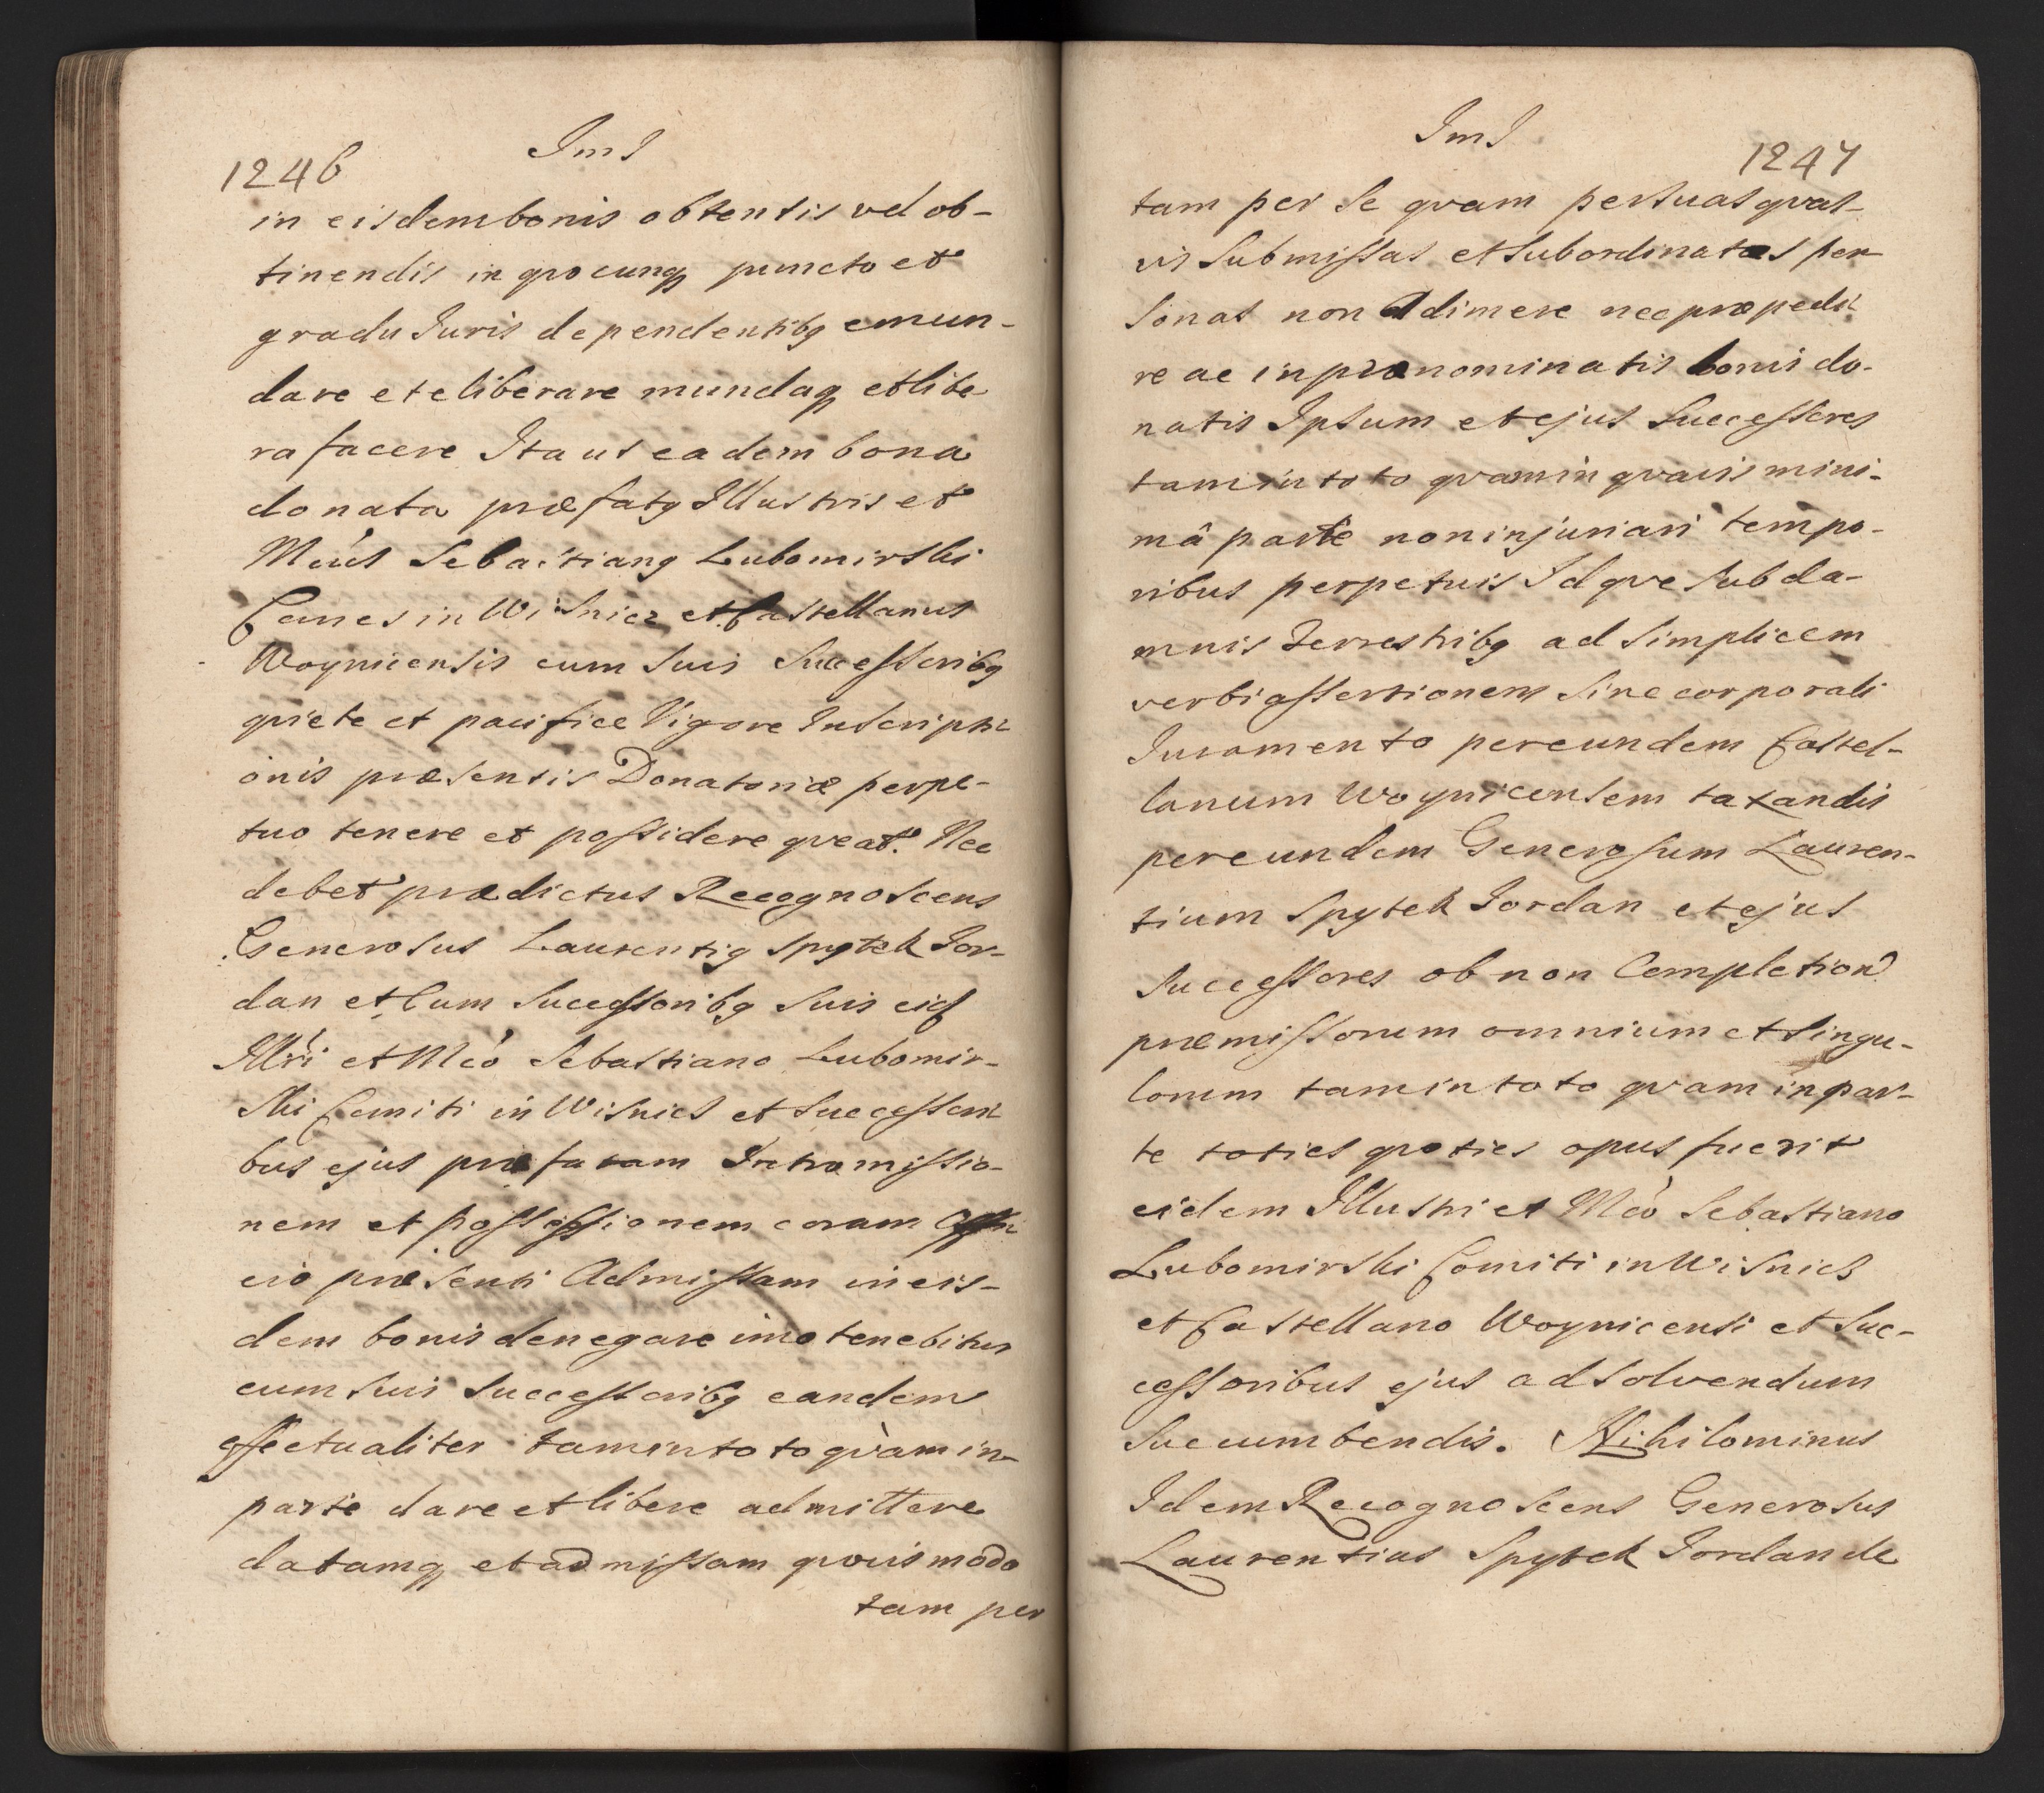 1246
ImI
in eisdem bonis obtentis vel ob-
tinendis in qvocunqz puncto et
gradu Iuris dependentibg emun-
dare et eliberare mundaqz et libe
ra facere Ita ut eadem bona
donata præfatg Illustris et
Mcús Sebastiang Lubomirski
Comes in Wisnicz et Castellanus
Woyniciensis cum suis Successoribg
qviete et pacifice Vigore Inscripti-
onis præsentis Donatoriæ perpe-
tuo tenere et possidere qveat. Nec
debet prædictus Recognoscens
Generosus Laurentig Spytek Ior-
dan et Cum Sucessoribg Suis
Illri et Mcó Sebastiano Lubomir-
ski Comiti in Wisnics et Successori
bus ejus præfatam Intromissio-
nem et possessionem coram Offi
cio præsenti Admissam in eis-
dem bonis denegare imo tenebitur
cum suis Successoribg eandem
effectualiter tam in toto qvàm in
parte dare et libere admittere
datamqz et admissam qvovis modo
tam per
ImI
1247
tam per se qvam per suas qvas-
vis Submissas et Subordinatas per
sonas non Adimere nec præpedi-
re ac in prænominatis bonis do-
natis Ipsum et ejus Successores
tam in toto qvam in qvavis mini-
mâ parte non injuriari tempo-
ribus perpetuis Idqve sub da-
mnis terrestribg ad Simplicem
verbi assertionem Sine corporali
Iuramento per eundem Castel-
lanum Woynicensem taxandis
per eundem Generosum Lauren-
tium Spytek Iordan et ejus
Successores ob non Completion
præmissorum omnium et singu-
lorum tam in toto qvam in par-
te toties qvoties opus fuerit
eidem Illustri et Mcó Sebastiano
Lubomirski Comiti in Wisnicz
et Castellano Woynicensi et Suc-
cessoribus ejus ad Solvendum
Succumbendis. Nihilominus
Idem Recognoscens Generosus
Laurentius Spytek Iordan de